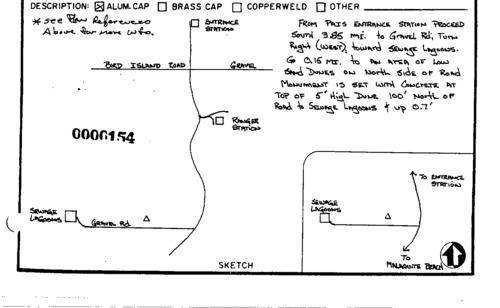 DESCRIPTION: ☒ ALUM. CAP ☐ BRASS CAP ☐ COPPERWELD ☐ OTHER
* See Plan References
Above for more info.
ENTRANCE
STATION
FROM PAIS ENTRANCE STATION PROCEED
SOUTH 3.85 MI. to GRAVEL Rd; TURN
RIGHT (WEST), toward SEWAGE LAGOONS.
Go 0.15 MI. TO AN AREA OF LOW
SAND DUNES ON NORTH SIDE OF ROAD
MONUMENT IS SET WITH CONCRETE AT
TOP OF 5' HIGH DUNE 100' NORTH OF
ROAD to SEWAGE LAGOONS & UP 0.7'
BIRD ISLAND ROAD GRAVEL
RANGER
STATION
0006154
SEWAGE
LAGOONS
GRAVEL Rd.
TO ENTRANCE
STATION
SEWAGE
LAGOONS
TO
MALAQUITE BEACH
SKETCH